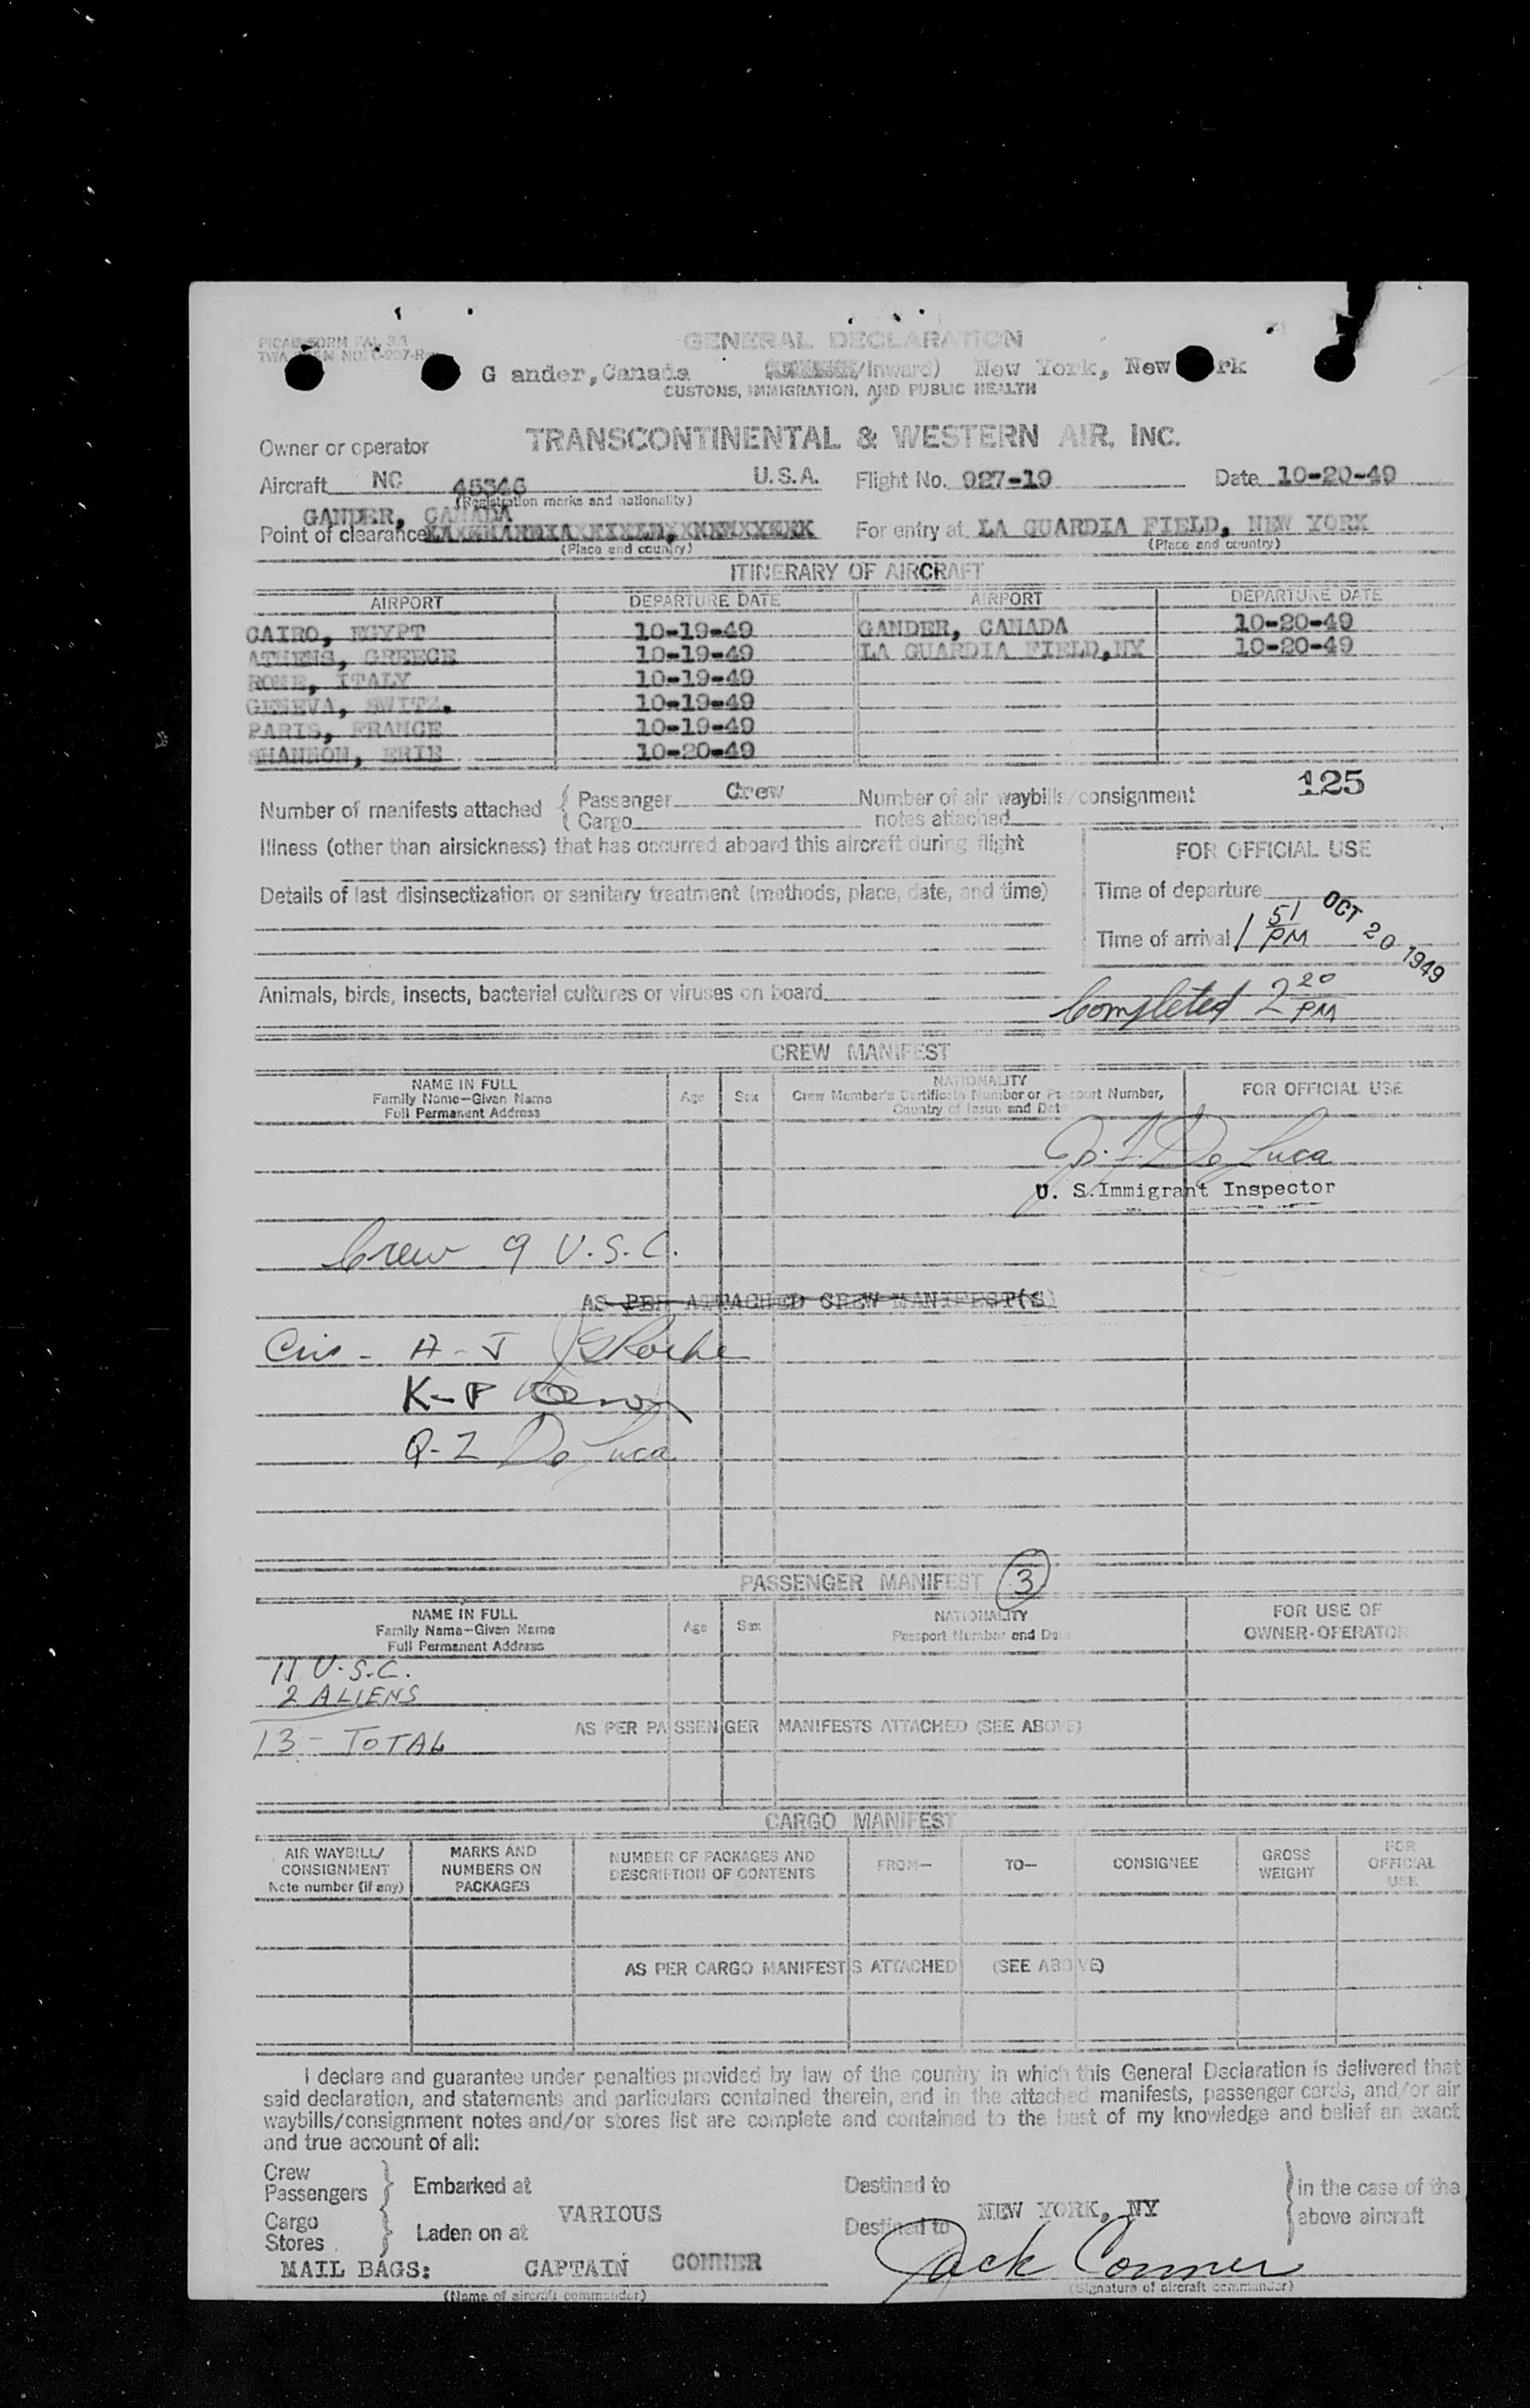 GENERAL DECLARATION
G ander, Canada /Inward) New York, New rk
CUSTOMS, IMMIGRATION, AND PUBLIC HEALTH
Owner or operator TRANSCONTINENTAL & WESTERN AIR, INC.
Aircraft NC 45346 U.S.A. Flight No. 927-19 Date 10-20-49
(Registration marks and nationality)
GANDER, CANADA
Point of clearance For entry at LA GUARDIA FIELD, NEW YORK
(Place and country) (Place and country)
ITINERARY OF AIRCRAFT
AIRPORT DEPARTURE DATE AIRPORT DEPARTURE DATE
CAIRO, EGYPT 10-19-49 GANDER, CANADA 10-20-49
ATHENS, GREECE 10-19-49 LA GUARDIA FIELD, NY 10-20-49
ROME, ITALY 10-19-49
GENEVA, SWITZ. 10-19-49
PARIS, FRANCE 10-19-49
SHANNON, ERIE 10-20-49
125
Number of manifests attached { Passenger Crew Number of air waybills/consignment
{ Cargo notes attached
Illness (other than airsickness) that has occurred aboard this aircraft during flight
FOR OFFICIAL USE
Details of last disinsectization or sanitary treatment (methods, place, date, and time)
Time of departure
Time of arrival 1 51 PM OCT 20 1949
Animals, birds, insects, bacterial cultures or viruses on board
Completed 2 20 PM
CREW MANIFEST
NAME IN FULL
Family Name—Given Name
Full Permanent Address
Age Sex
NATIONALITY
Crew Member's Certificate Number or Passport Number,
Country of Issue and Date
FOR OFFICIAL USE
De Luca
U. S. Immigrant Inspector
Crew 9 U.S.C.
AS PER ATTACHED CREW MANIFEST(S)
A-J
K-P
Q-Z De Luca
PASSENGER MANIFEST 3
NAME IN FULL
Family Name—Given Name
Full Permanent Address
Age Sex
NATIONALITY
Passport Number and Date
FOR USE OF
OWNER-OPERATOR
11 U.S.C.
2 ALIENS
13 - TOTAL
AS PER PASSENGER MANIFESTS ATTACHED (SEE ABOVE)
CARGO MANIFEST
AIR WAYBILL/
CONSIGNMENT
Note number (if any)
MARKS AND
NUMBERS ON
PACKAGES
NUMBER OF PACKAGES AND
DESCRIPTION OF CONTENTS
FROM—
TO—
CONSIGNEE
GROSS
WEIGHT
FOR
OFFICIAL
USE
AS PER CARGO MANIFESTS ATTACHED (SEE ABOVE)
I declare and guarantee under penalties provided by law of the country in which this General Declaration is delivered that
said declaration, and statements and particulars contained therein, and in the attached manifests, passenger cards, and/or air
waybills/consignment notes and/or stores list are complete and contained to the best of my knowledge and belief an exact
and true account of all:
Crew
Passengers } Embarked at Destined to } in the case of the
VARIOUS NEW YORK, NY above aircraft
Cargo
Stores } Laden on at Destined to
MAIL BAGS: CAPTAIN CONNER Jack Conner
(Name of aircraft commander) (Signature of aircraft commander)